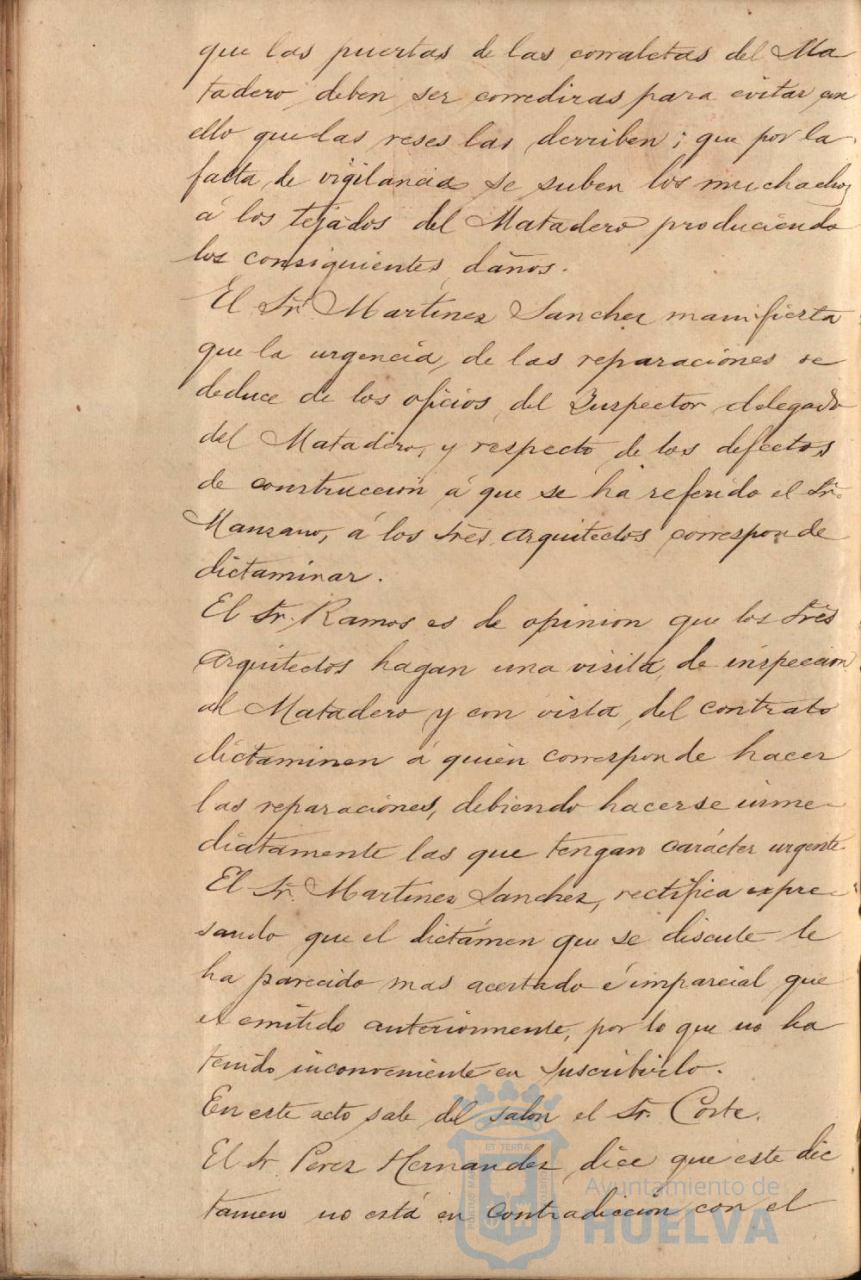 que las puertas de las corraletas del Ma
tadero, deben ser corredizas para evitar con
ello que las reses las derriben; que por la
falta de vigilancia se suben los muchachos
á los tejados del Matadero produciendo
los consiguientes daños.
El Sr. Martinez Sanchez manifiesta
que la urgencia, de las reparaciones se
deduce de los oficios del Inspector delegado
del Matadero, y respecto de los defectos
de construccion á que se ha referido el Sr.
Manzano, á los tres arquitectos corresponde
dictaminar.
El Sr. Ramos es de opinion que los tres
arquitectos hagan una visita de inspeccion
al Matadero y con vista, del contrato
dictaminen á quien corresponde hacer
las reparaciones, debiendo hacerse inme-
diatamente las que tengan carácter urgente.
El Sr. Martinez Sanchez, rectifica expre-
sando que el dictámen que se discute le
ha parecido mas acertado é imparcial que
el emitido anteriormente, por lo que no ha
tenido inconveniente en suscribirlo.
En este acto sale del salon el Sr. Corte.
El Sr Perez Hernandez, dice que este dic
tamen no está en contradiccion con el
ET TERRA
Ayuntamiento de
HUELVA